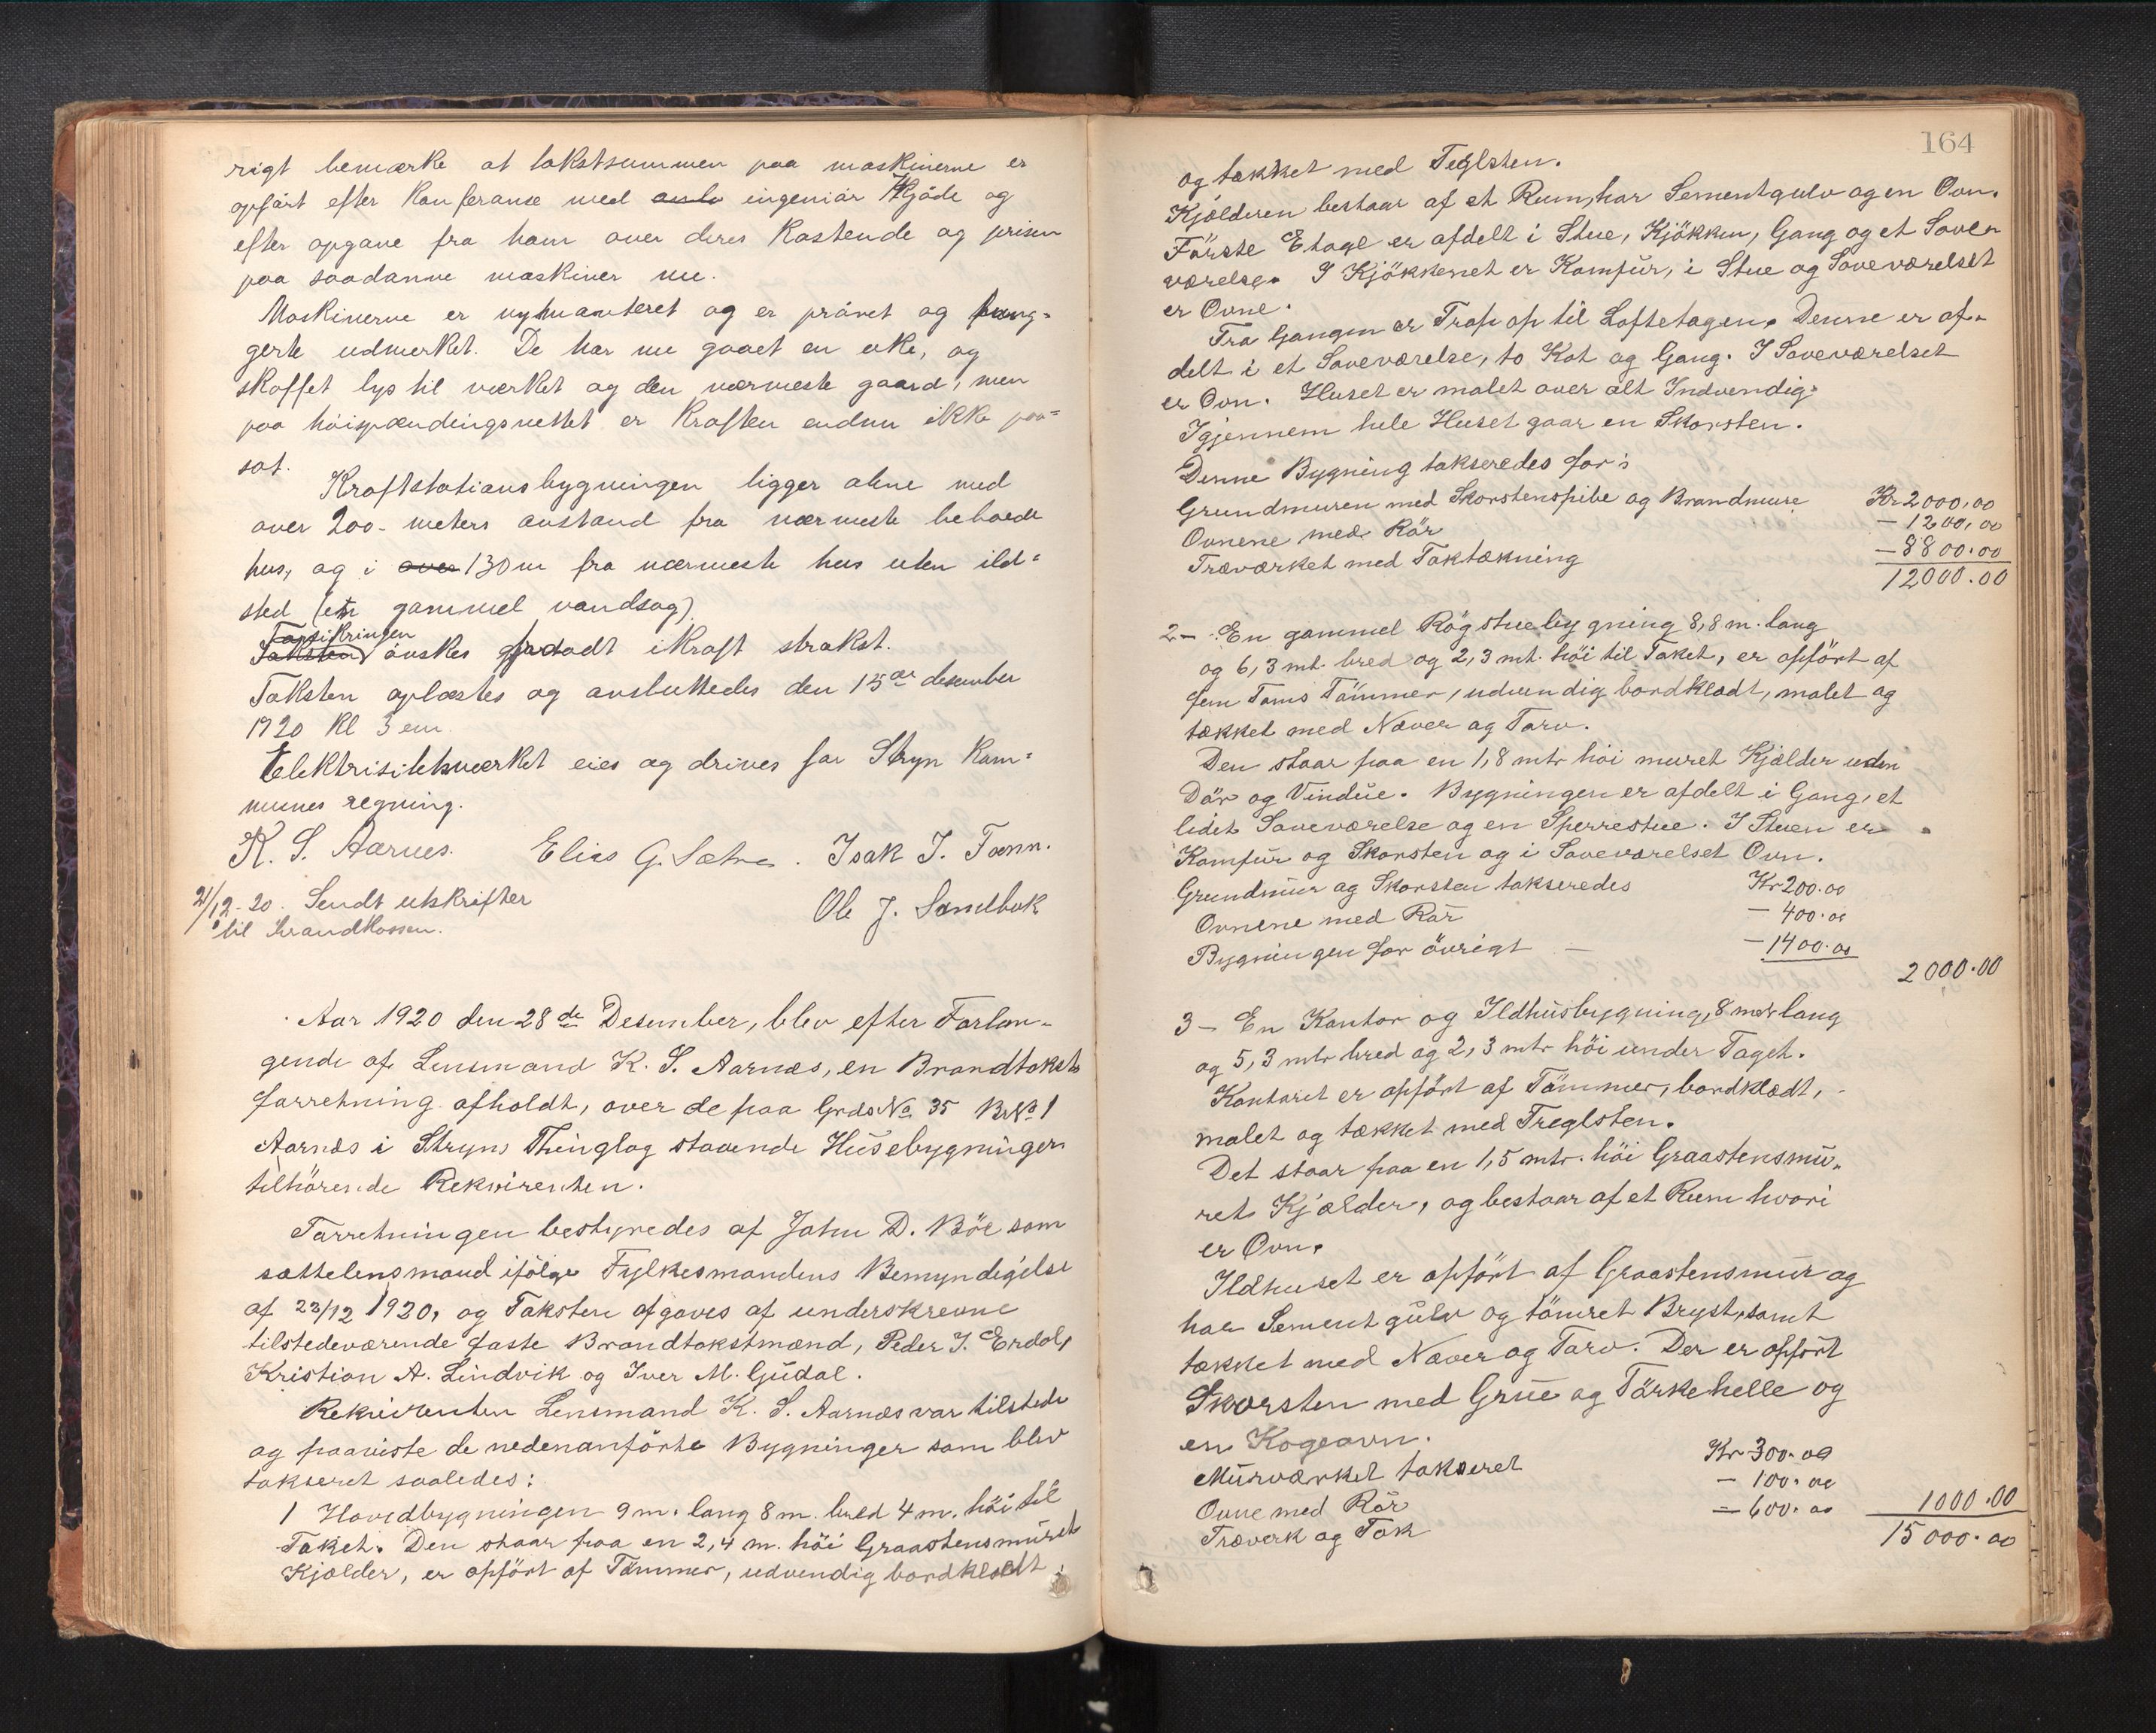 rigt bemærke at takstsummen paa maskinerne er
opført efter konferanse med ingeniør Kjøde og
efter opgave fra ham over deres kostende og prisen
paa saadanne maskiner nu.
Maskinerne er nymonteret og er prøvet og fung=
gerte udmerket. De har nu gaaet en uke, og
skaffet lys til værket og den nærmeste gaard, men
paa høispændingsnettet er kraften endnu ikke paa=
sat.
Kraftstationsbygningen ligger alene med
over 200- meters avstand fra nærmeste beboede
hus, og i over 130 m fra nærmeste hus uten ild=
sted (en gammel vandsag)
Forsikringen
Taksten ønskes godtadt ikraft strakst.
Taksten oplæstes og avsluttedes den 15de desember
1920 kl 3 em.
Elektrisitetsværket eies og drives for Stryn kom=
munes regning.
K. S. Aarnes. Elias G. Sætre. Isak J. Tonn.
21/12-20. Sendt utskrifter
til brandkassen.
Ole J. Sandbok
Aar 1920 den 28de Desember, blev efter Forlan-
gende af Lensmand K. S. Aarnes, en Brandtakst
forretning afholdt, over de paa Grds No 35 BrNo 1
Aarnæs i Stryns Thinglag staaende Husebygninger
tilhørende Rekvirenten.
Forretningen bestyredes af John D. Böe som
sættelensmand ifölge Fylkesmandens Bemyndigelse
af 22/12 1920, og Taksten afgaves af underskrevne
tilstedeværende faste Brandtakstmænd, Peder J. Erdal,
Kristian A. Lindvik og Iver M. Gudal.
Rekvirenten Lensmand K. S. Aarnæs var tilstede
og paaviste de nedenanförte Bygninger som blev
takseret saaledes:
1 Hovedbygningen 9 m. lang 8 m. bred 4 m. höi til
Taket. Den staar paa en 2,4 m. höi Graastensmuret
Kjælder, er opfört af Tömmer, udvendig bordklædt
164
og tækket med Teglsten.
Kjælderen bestaar af et Rum, har Sementgulv og en Ovn.
Förste Etage er afdelt i Stue, Kjökken, Gang og et Sove-
værelse. I Kjökkenet er Komfur, i Stue og Soveværelset
er Ovne.
Fra Gangen er Trap op til Loftetagen. Denne er af-
delt i et Soveværelse, to Kot og Gang. I Soveværelset
er Ovn. Huset er malet over alt Indvendig.
Igjennem hele Huset gaar en Skorsten.
Denne Bygning takseredes for:
Grundmuren med Skorstenspibe og Brandmure Kr 2000,00
Ovnene med Rör - 1200,00
Træværket med Taktækning - 8800.00
12000.00
2- En gammel Rögstuebygning 8,8 m. lang
og 6,3 mt. bred og 2,3 mt. höi til Taket, er opfört af
fem Toms Tömmer, udvendig bordklædt, malet og
tækket med Næver og Torv.
Den staar paa en 1,8 mtr höi muret Kjælder uden
Dör og Vindue. Bygningen er afdelt i Gang, et
lidet Soveværelse og en Sperrestue. I Stuen er
Komfur og Skorsten og i Soveværelset Ovn.
Grundmur og Skorsten takseredes Kr 200.00
Ovnene med Rör - 400.00
Bygningen for övrigt - - 1400.00
2000.00
3- En Kontor og Ildhusbygning, 8 mtr lang
og 5,3 mtr bred og 2,3 mtr höi under Taget.
Kontoret er opfört af Tömmer, bordklædt, -
malet og tækket med Treglsten.
Det staar paa en 1,5 mtr. höi Graastensmu-
ret Kjælder, og bestaar af et Rum hvori
er Ovn.
Ildhuset er opfört af Graastensmur og
har Sementgulv og tömret Bryst, samt
tækket med Næver og Torv. Der er opfört
Skorsten med Grue og Törkehelle og
en Kogeovn.
Murværket takseret Kr 300.00
Ovne med Rör - 100.00
Træverk og Tak - 600.00 1000.00
15000.00